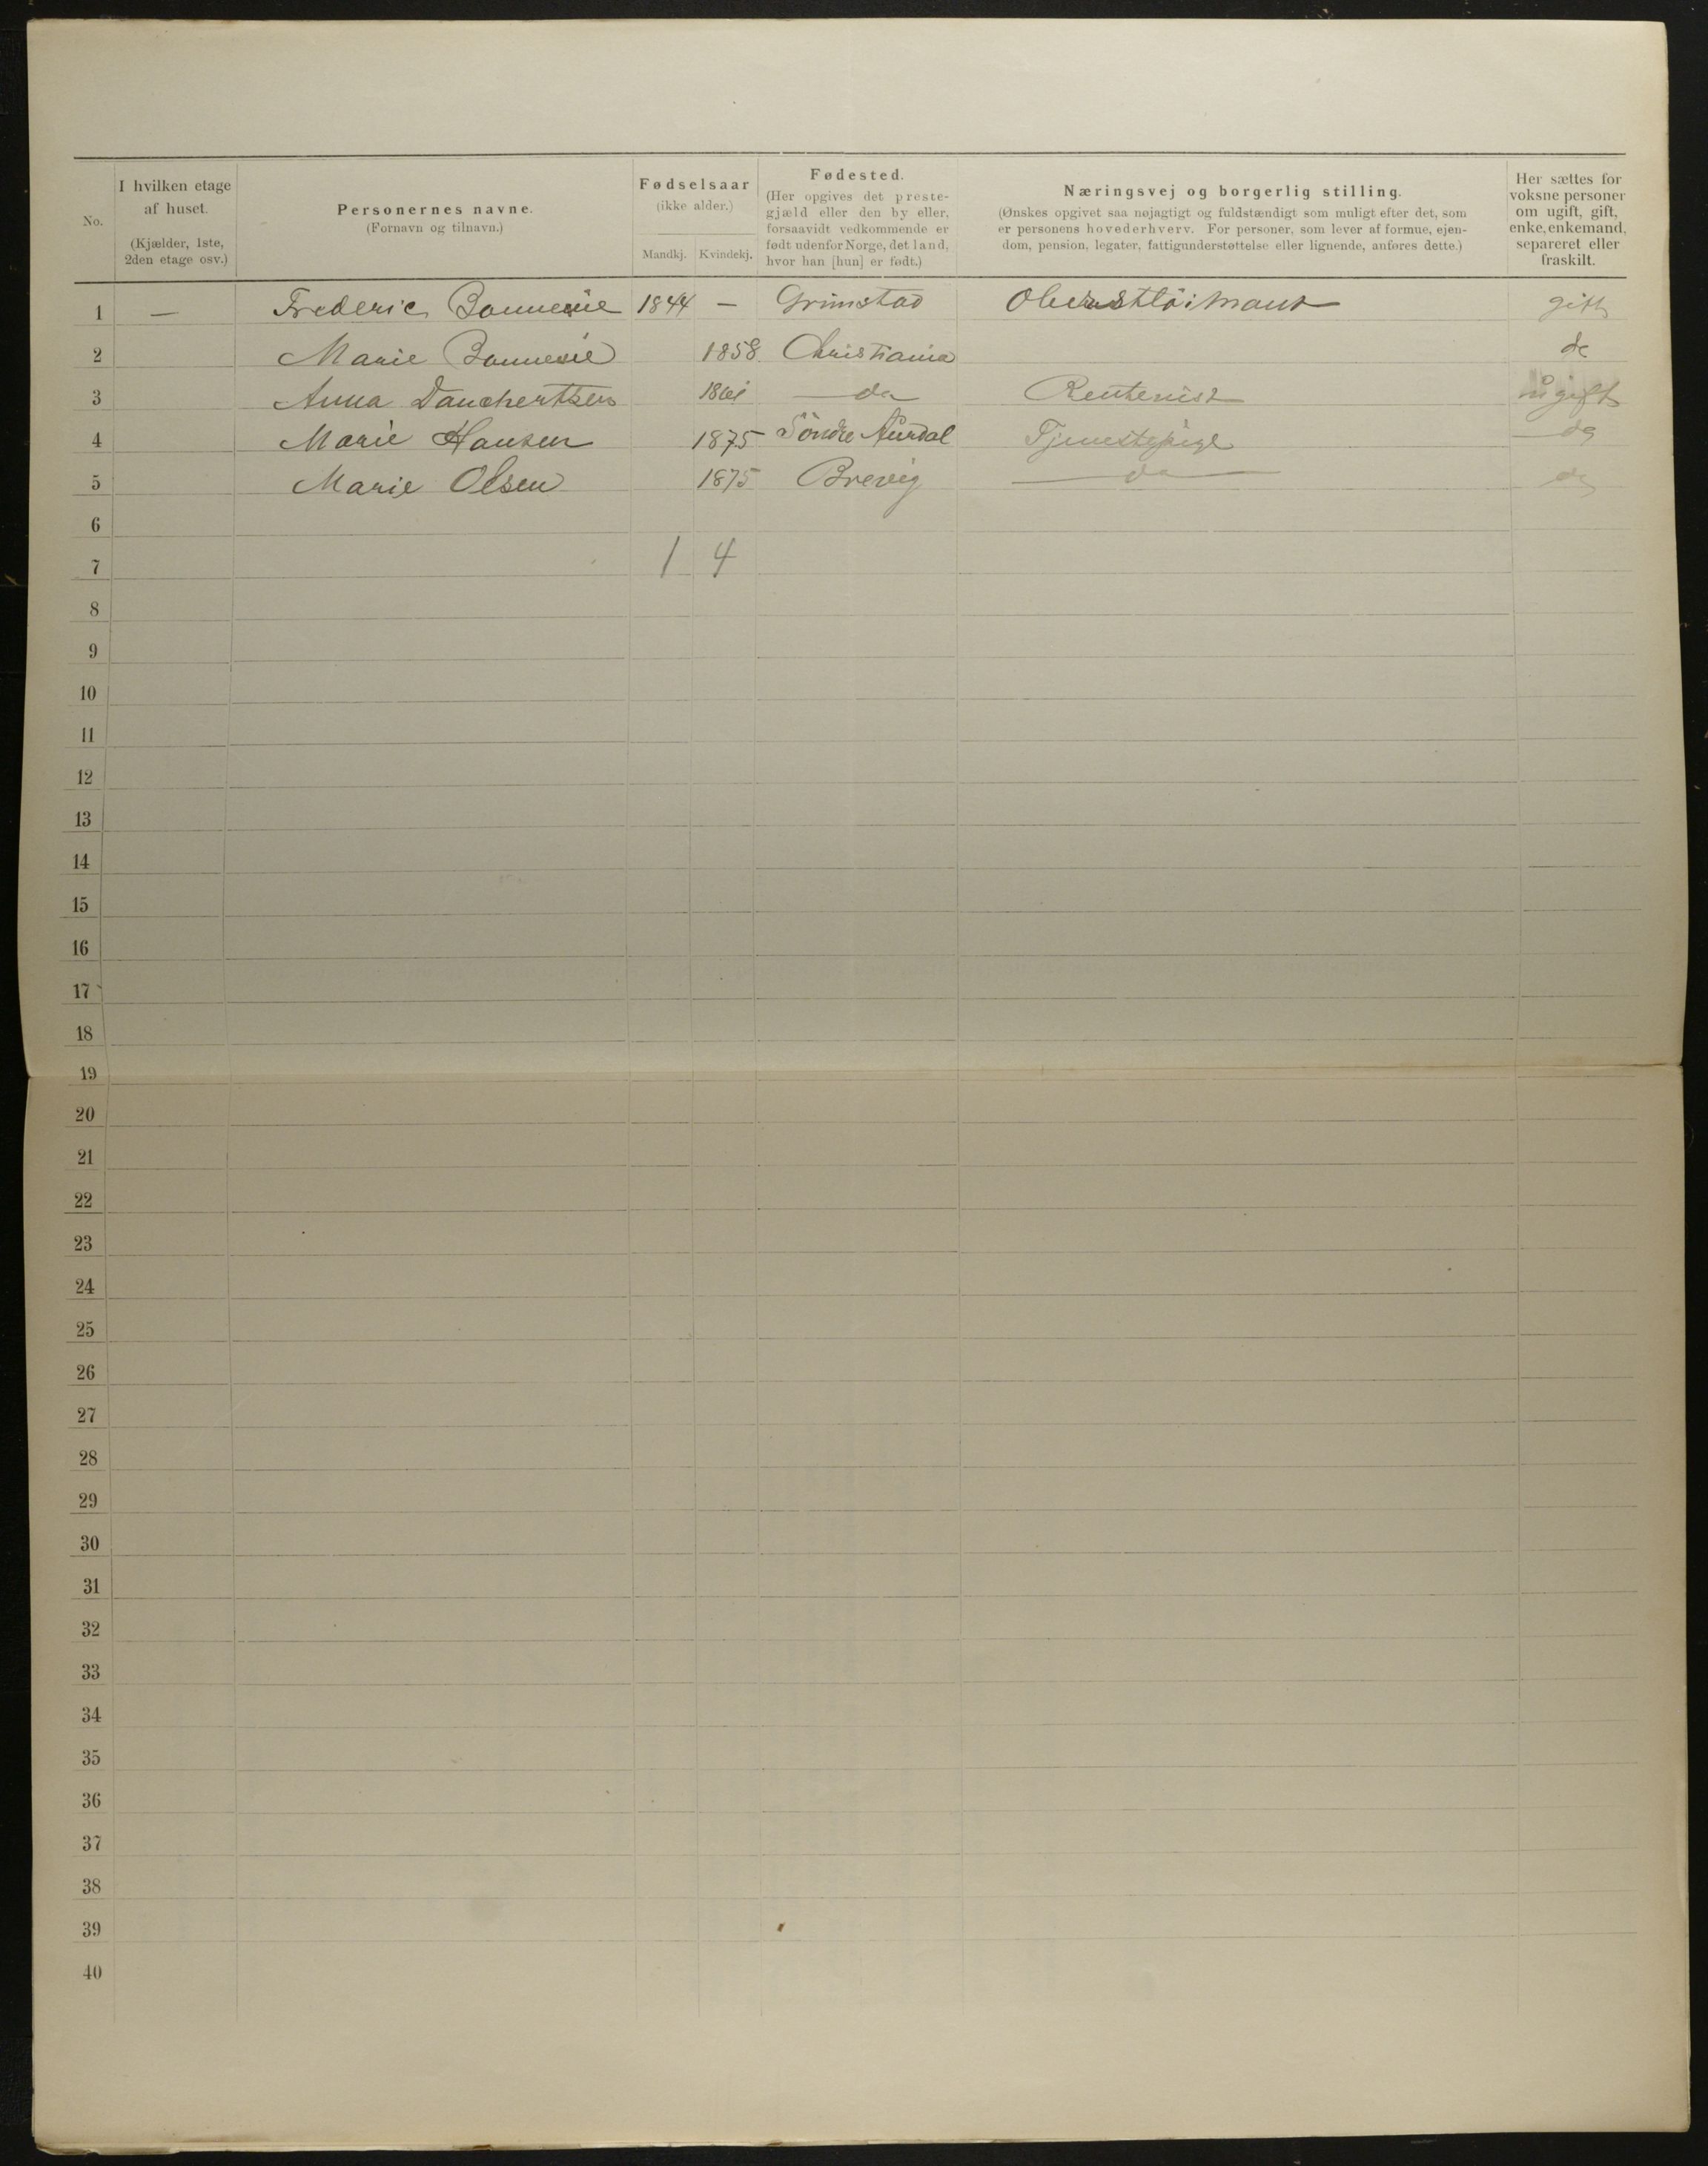 No.
I hvilken etage af huset.
(Kjælder, 1ste, 2den etage osv.)
Personernes navne.
(Fornavn og tilnavn.)
Fødselsaar
(ikke alder.)
Mandkj. Kvindekj.
Fødested.
(Her opgives det prestegjæld eller den by eller, forsaavidt vedkommende er født udenfor Norge, det land, hvor han [hun] er født.)
Næringsvej og borgerlig stilling.
(Ønskes opgivet saa nøjagtigt og fuldstændigt som muligt efter det, som er personens hovederhverv. For personer, som lever af formue, ejendom, pension, legater, fattigunderstøttelse eller lignende, anføres dette.)
Her sættes for voksne personer om ugift, gift, enke, enkemand, separeret eller fraskilt.
1 — Frederic 1844 — Grimstad gift
2 Marie 1858 Christiania do
3 Anna Danchertsen do Rentenist ugift
4 Marie Hansen 1875 Söndre Aurdal Tjenestepige do
5 Marie Olsen 1875 Brevig do do
6
7 1 4
8
9
10
11
12
13
14
15
16
17
18
19
20
21
22
23
24
25
26
27
28
29
30
31
32
33
34
35
36
37
38
39
40